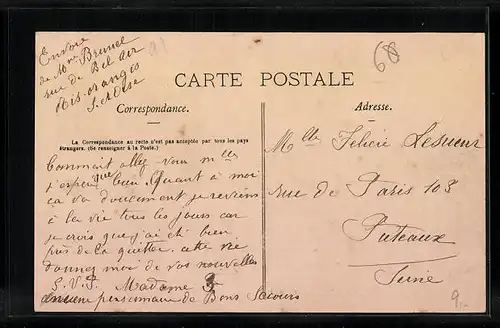 Envoie
de Mme Brunel
rue de Bel Air
Ris-oranges
S. et Oise
91
68
CARTE POSTALE
Correspondance.
Adresse.
La Correspondance au recto n'est pas acceptée par tous les pays
étrangers. (Se renseigner à la Poste.)
Comment allez vous mlle
j'espère que bien. Quant à moi
ça va doucement je reviens
à la vie tous les jours car
je crois que j'ai été bien
près de la quitter. cette vie
donnez moi de vos nouvelles
S.V.P. Madame
pensionnaire de Bons Secours
Mlle Félicie Lesueur
rue de Paris 103
Puteaux
Seine
9,-